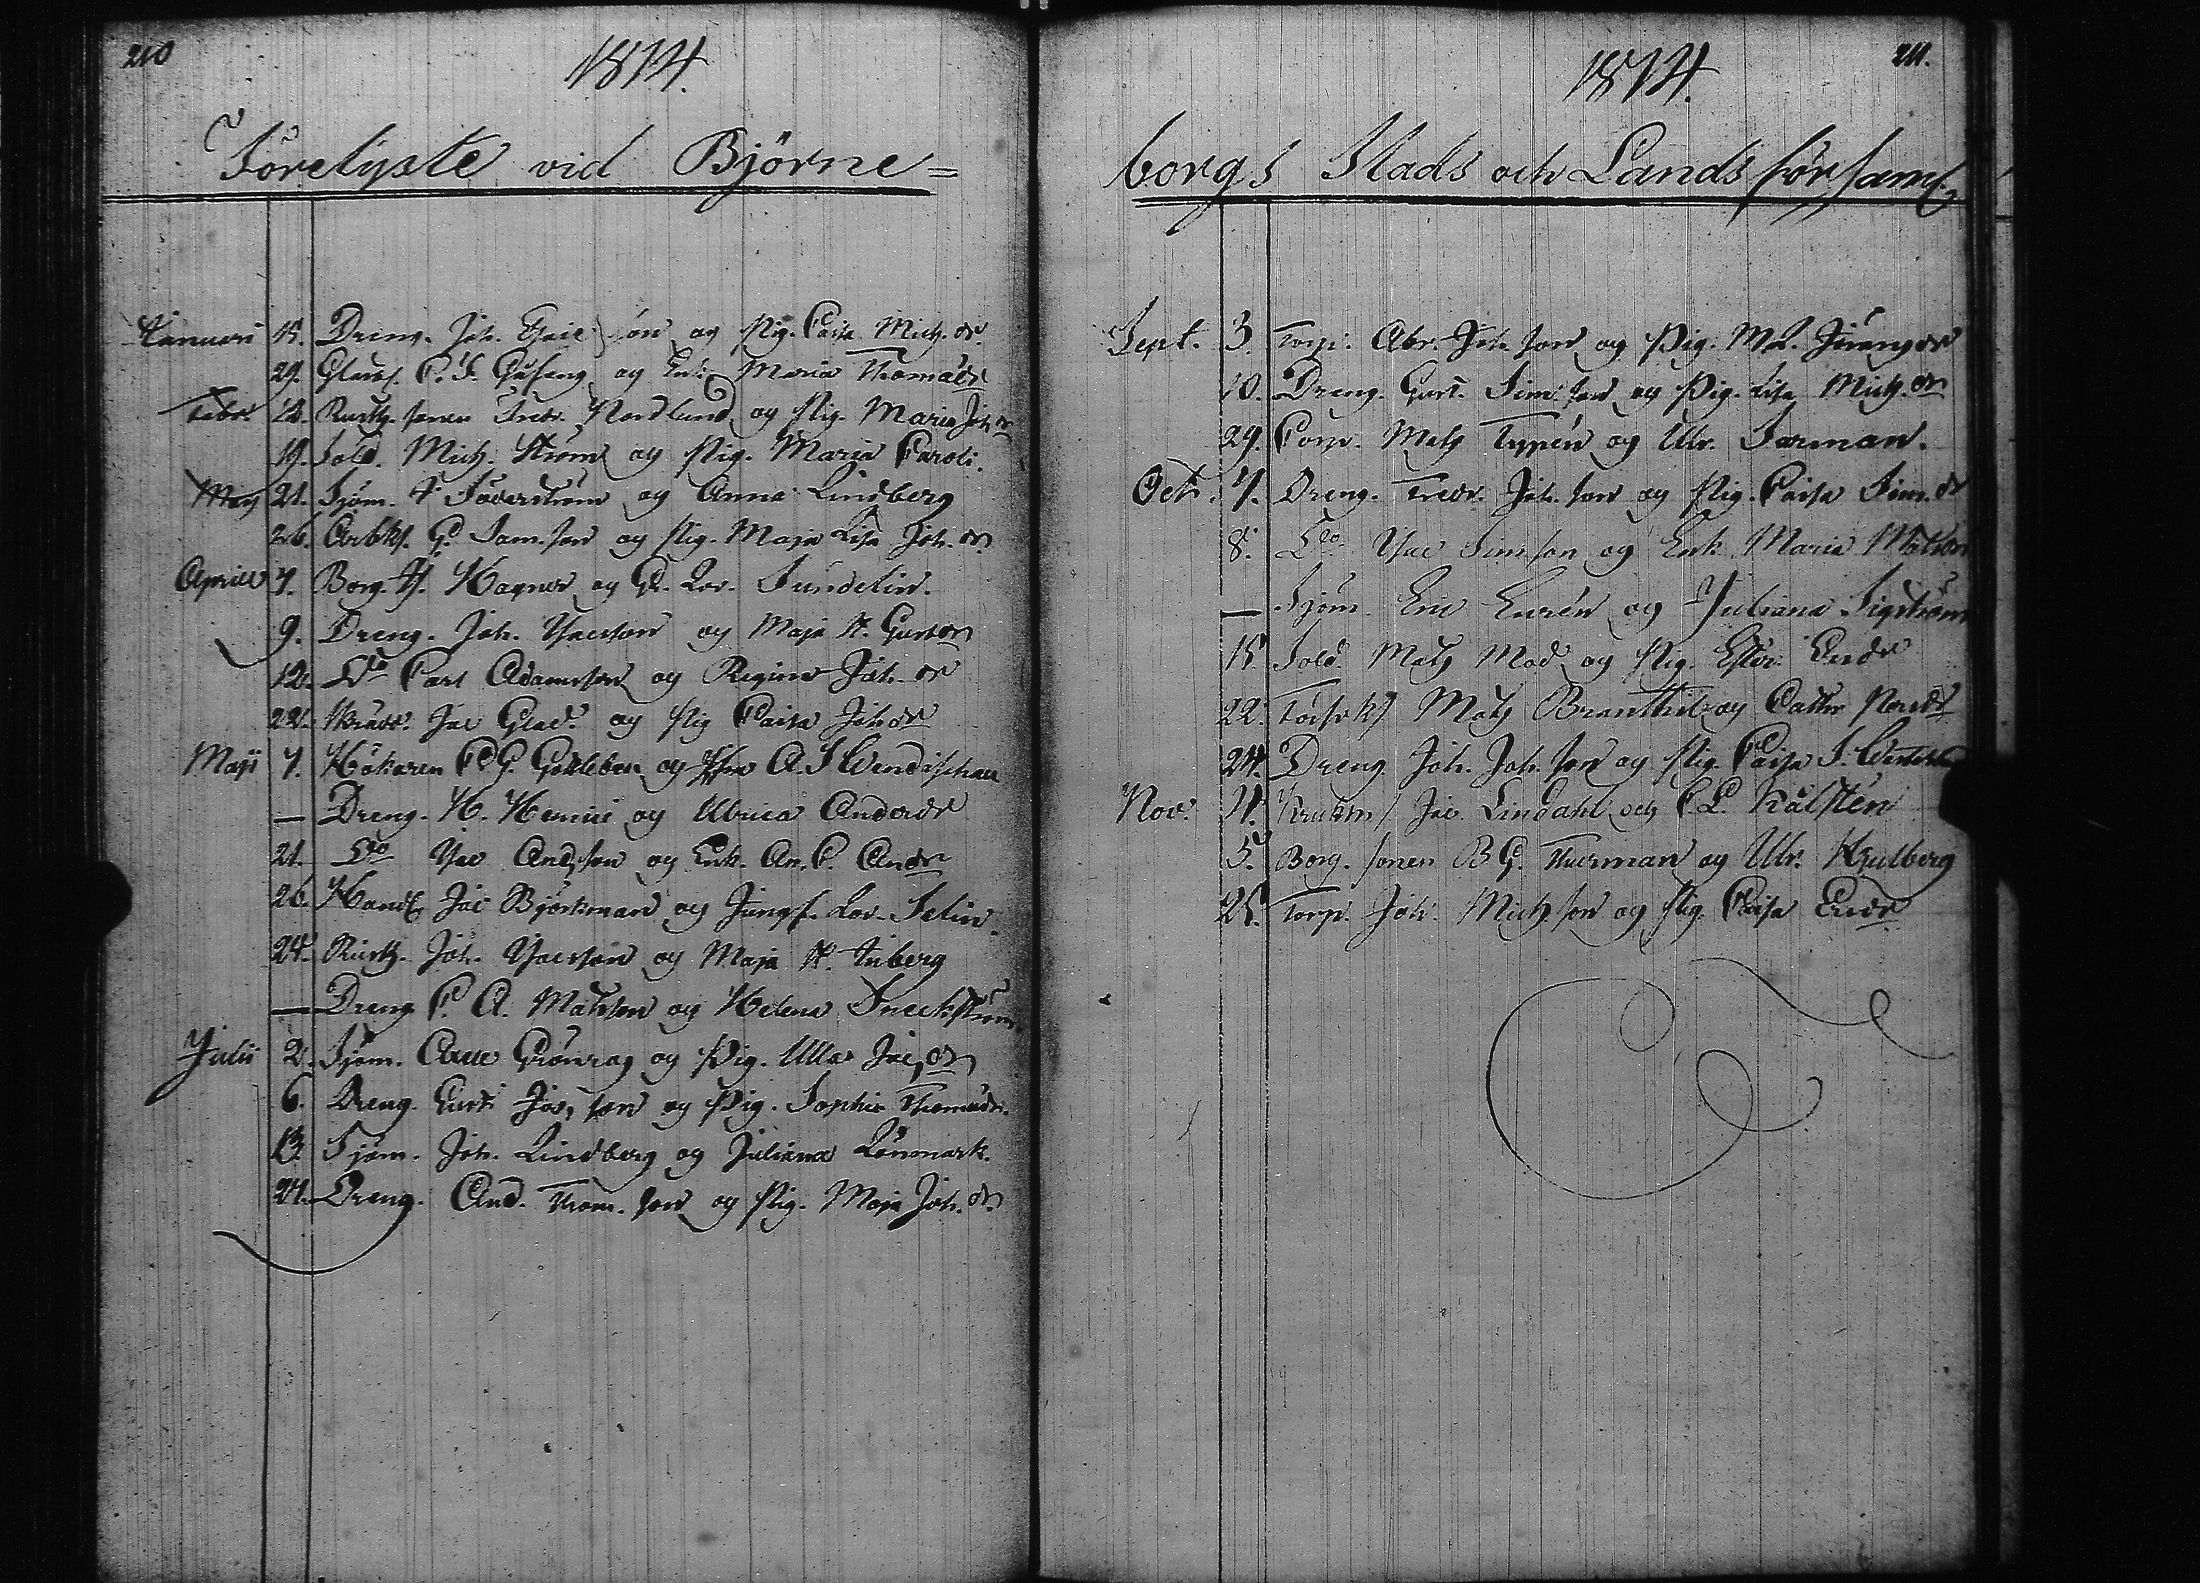 210
1814.
Förelyste vid Björne=
Januari 15. Dreng. Joh. Isaci son og Pig. Caisa Mich. dr.
29. P. S. og Enk. Maria Thomædr
Febr. 12. Rusth. sonen Fredr. Nordlund og Pig. Maria Joh dr
19. Sold. Mich. Ström og Pig. Maria Caroli.
Mars 21. Sjöm. F Söderström og Anna Lindberg
26. Arbks. G. Sam. son og Pig. Maja Lisa Joh. dr.
Aprill 7. Borg. H. Hagner og Lov. Sundelin.
9. Dreng. Joh. Isacson og Maja H. Gustdr
12. Do Carl Adamsson og Regina Joh. dr
22. Jac Glad. og Pig Caisa Joh dr
Maji 7. Hökaren C G. og A. S Wendischau
— Dreng. H. Henrici og Ulrica Andersdr
21. Do Isac Andsson og Enk. An. C. Andr
26. Handl Jac Björkman og Jungf. Lov. Selin.
24. Rusth. Joh. Isacson og Maja H. Inberg
— Dreng C. A. Matsson og Helena Sneckström
Julii 2. Sjöm. Grönroos og Pig. Ulla Jac, dr
6. Dreng. Gust. Jos, son og Pig. Sophia Thomædr.
13. Sjöm. Joh. Lindberg og Juliana Lönmark.
24. Dreng. And. Thom. son og Pig. Maja Joh. dr.
211.
1814.
borgs Stads och Lands församl.
Sept. 3. Torp. Abr. Joh. son og Pig. M. L.
10. Dreng. Gust. Sim. son og Pig. Lisa Mich. dr
29. Corp. Mats Typpén og Ulr. Forman.
Oct. 7. Dreng. Fredr. Joh. son og Pig. Caisa Sim. dr
8. Do Isac Simson og Enk Maria
— Sjöm. Eric Eurén og Juliana Sigström
15 Sold. Mats Mod og Pig. Ester Ericdr
22. Mats og Cathr
24. Dreng Joh. Joh. son og Pig. Caisa S.
Nov. 4. Jac. Lindahl och C. L. Kålstén
5. Borg. sonen B G. Thurman og Ulr. Kjulberg
25. Torp. Joh. Mich son og Pig. Caisa Ericdr